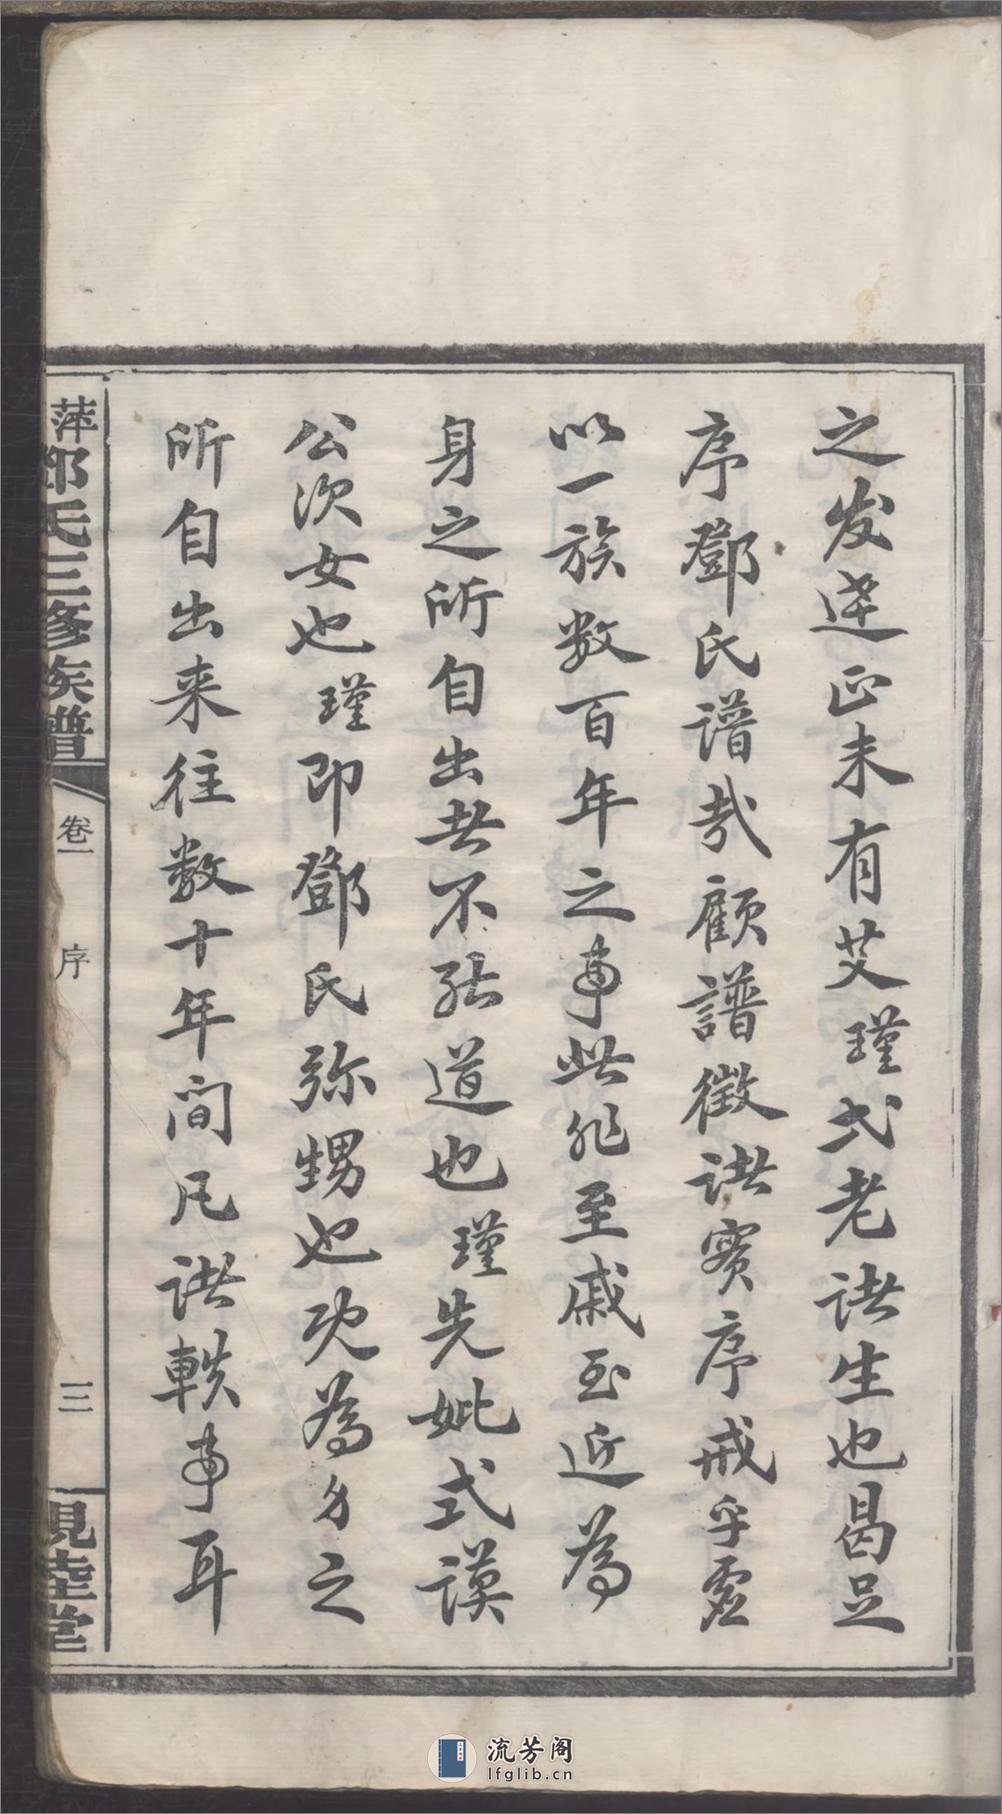 之发達正未有艾瑾弌老諸生也曷足
序鄧氏譜哉顧譜徵諸實序戒乎虛
以一族数百年之事此非至戚至近為
身之所自出者不能道也瑾先妣式謨
公次女也瑾即鄧氏弥甥也更為身之
所自出来往数十年间凡諸軼事耳
萍鄧氏三修族譜
卷一
序
三
親睦堂
流芳阁
lfglib.cn